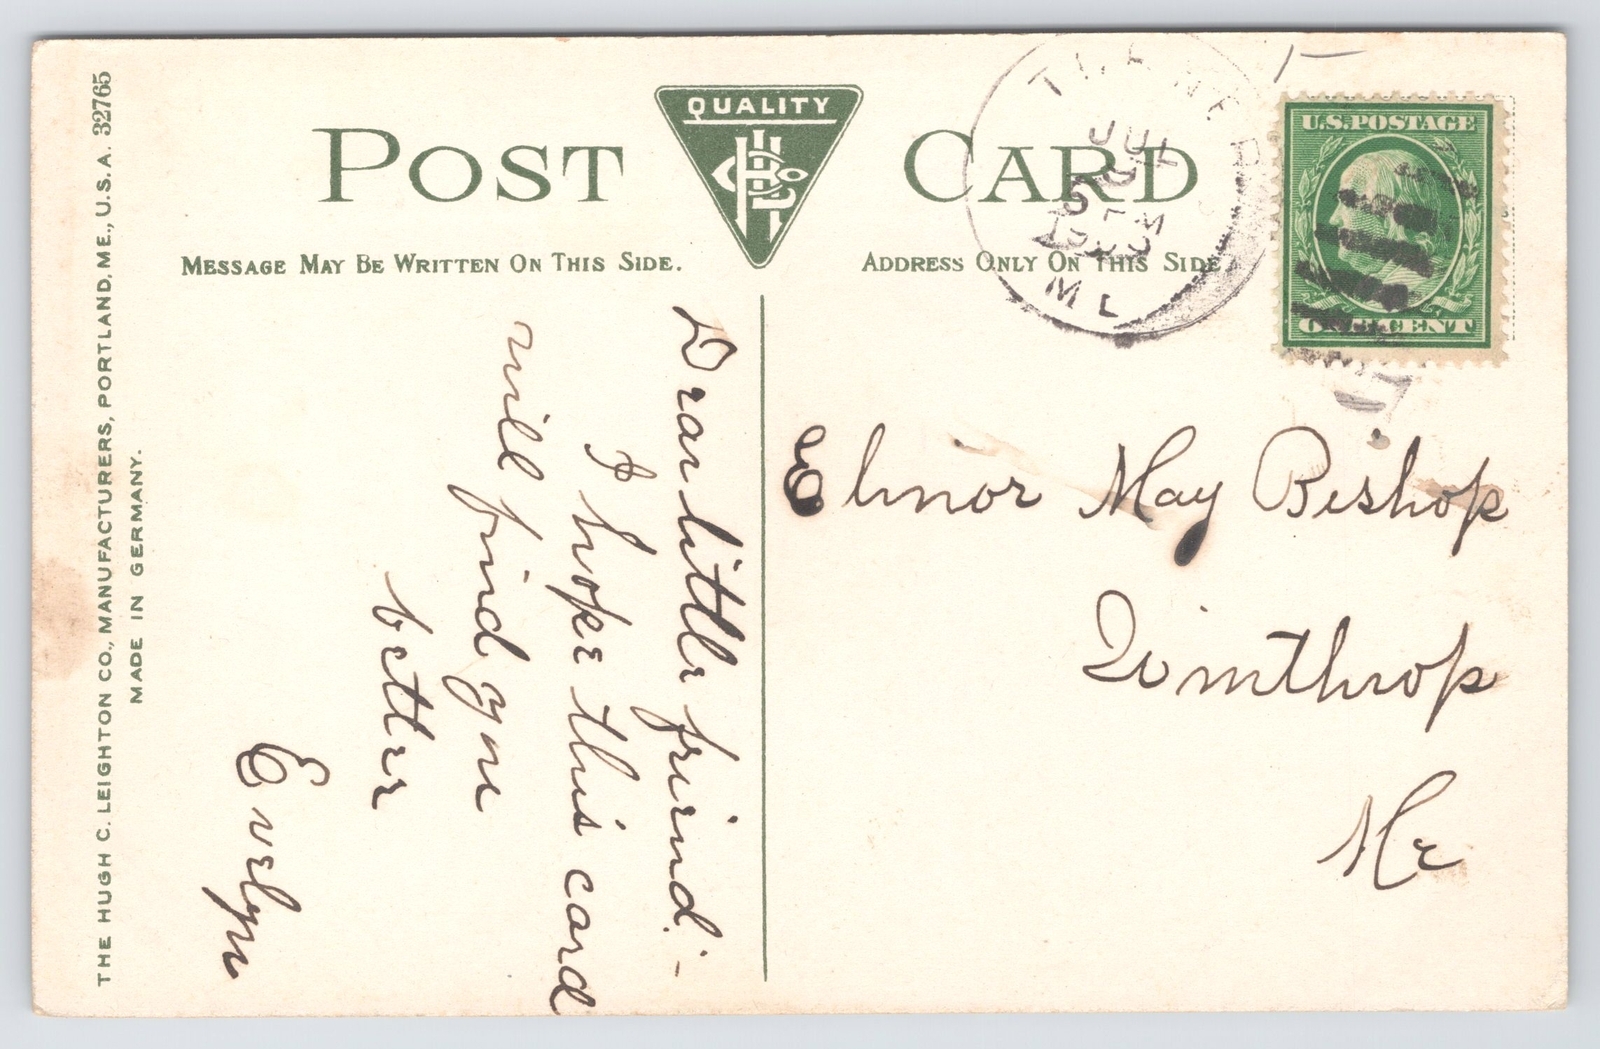 THE HUGH C. LEIGHTON CO., MANUFACTURERS, PORTLAND, ME., U.S.A. 32765
MADE IN GERMANY.
POST CARD
QUALITY
MESSAGE MAY BE WRITTEN ON THIS SIDE.
ADDRESS ONLY ON THIS SIDE.
JUL
U.S. POSTAGE
ONE CENT
Dear little friend:-
I hope this card
will find you
better
Evelyn
Elinor May Bishop
Winthrop
Me